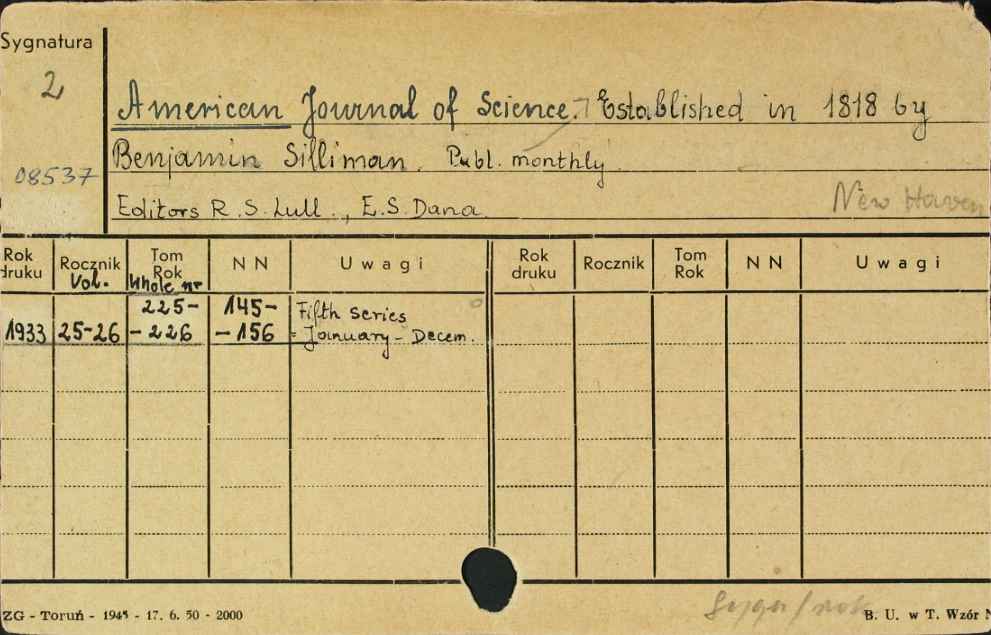 Sygnatura
2
08537
American Journal of Science. Established in 1818 by
Benjamin Silliman. Publ. monthly
Editors R.S. Lull., E.S. Dana.
New Haven
Rok druku Rocznik Tom Rok N N Uwagi Rok druku Rocznik Tom Rok N N Uwagi
Vol. Whole nr
225- 145- Fifth series
1933 25-26 -226 -156 January - Decem.
ZG - Toruń - 1945 - 17. 6. 50 - 2000
B. U. w T. Wzór